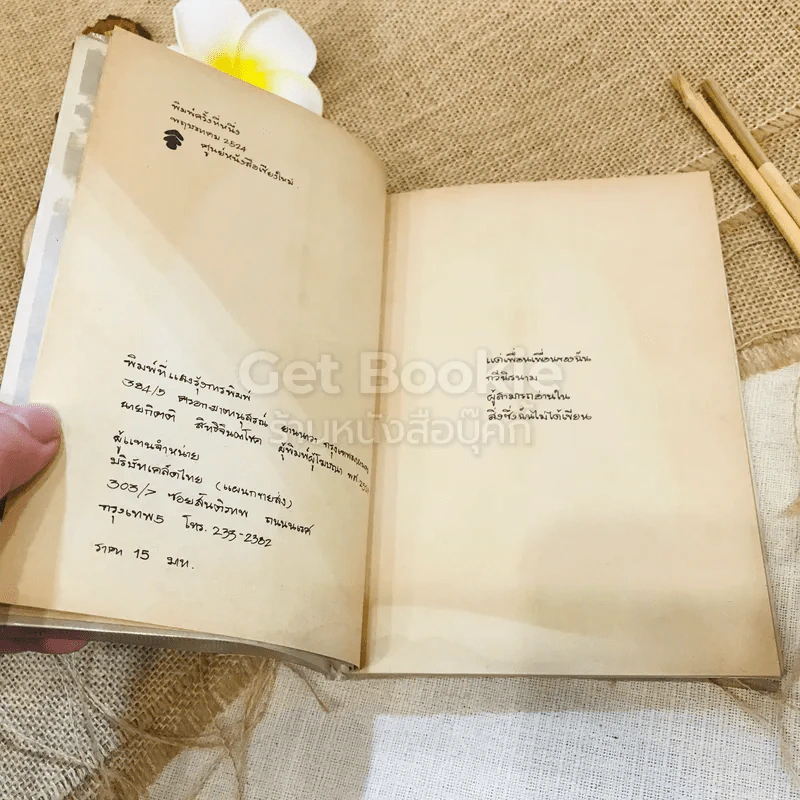 พิมพ์ครั้งที่หนึ่ง
พฤษภาคม 2524
ศูนย์หนังสือเชียงใหม่
พิมพ์ที่แสงรุ้งการพิมพ์
384/5 ตรอก ยานนาวา กรุงเทพมหานคร
นายกิตติ ผู้พิมพ์ผู้โฆษณา
ผู้แทนจำหน่าย
บริษัทเคล็ดไทย (แผนกขายส่ง)
303/7 ซอยสันติภาพ ถนนนเรศ
กรุงเทพ5 โทร. 233-2382
ราคา 15 บาท.
แด่เพื่อนเพื่อนของฉัน
กวีนิรนาม
ผู้สามารถอ่านใน
สิ่งซึ่งฉันไม่ได้เขียน
Get Bookie
ร้านหนังสือบุ๊คกี้